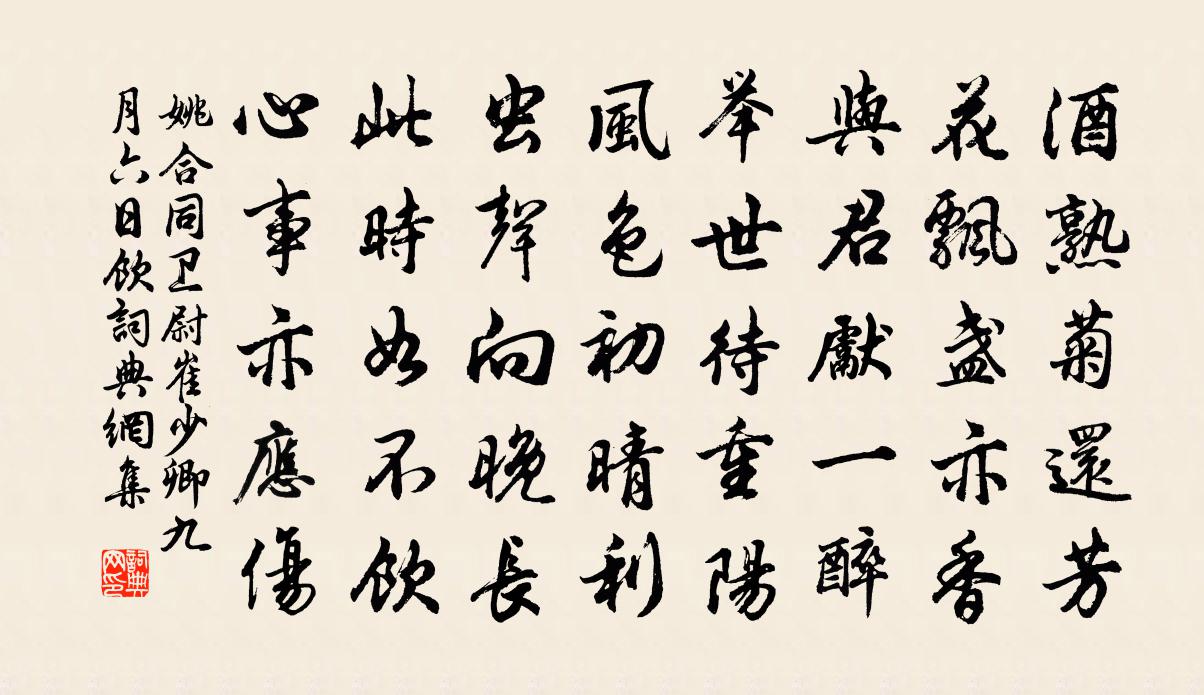 酒熟菊還芳
花飄盞亦香
與君獻一醉
举世待重陽
風色初晴利
虫聲向晚長
此時如不飲
心事亦應傷
姚合同卫尉崔少卿九
月六日飲詞典網集
詞典网印